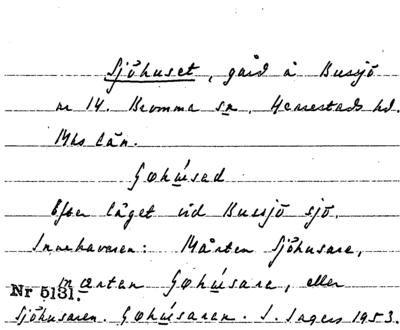 Sjöhuset, gård å Bussjö
nr 14. Bromma sn, Herrestads hd.
Mhs län.
Gøhúsed
Efter läget vid Bussjö sjö.
Innehavaren: Mårten Sjöhusare,
mærtan Gøhúsara, eller
Nr 5131.
Sjöhusaren. Gøhúsaren. I. Ingers 1953.